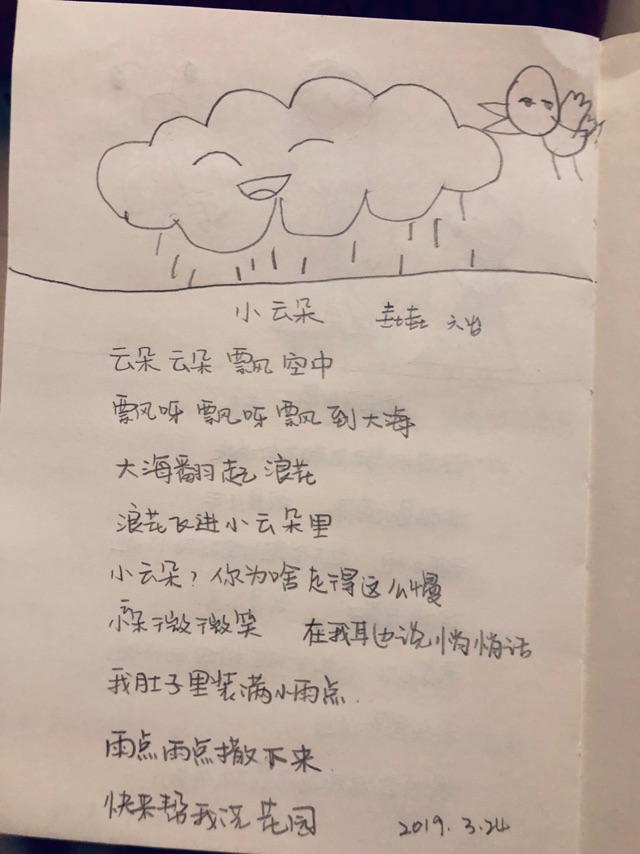 小云朵 垚垚 六岁
云朵云朵飘空中
飘呀飘呀飘到大海
大海翻起浪花
浪花飞进小云朵里
小云朵？你为啥走得这么慢
小朵微微笑 在我耳边说悄悄话
我肚子里装满小雨点.
雨点雨点撒下来
快来帮我浇花园 2019.3.24